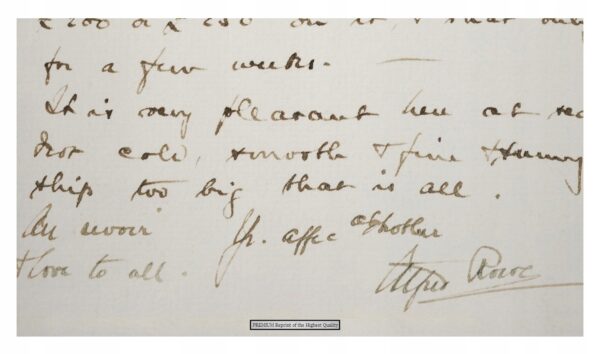 £200 or £250 on it, & that only
for a few weeks. —
It is very pleasant here at sea
not cold, smooth & fine & sunny
ship too big that is all.
Au revoir Yr. affec brother
& love to all.
Alfred Rowe
PREMIUM Reprint of the Highest Quality